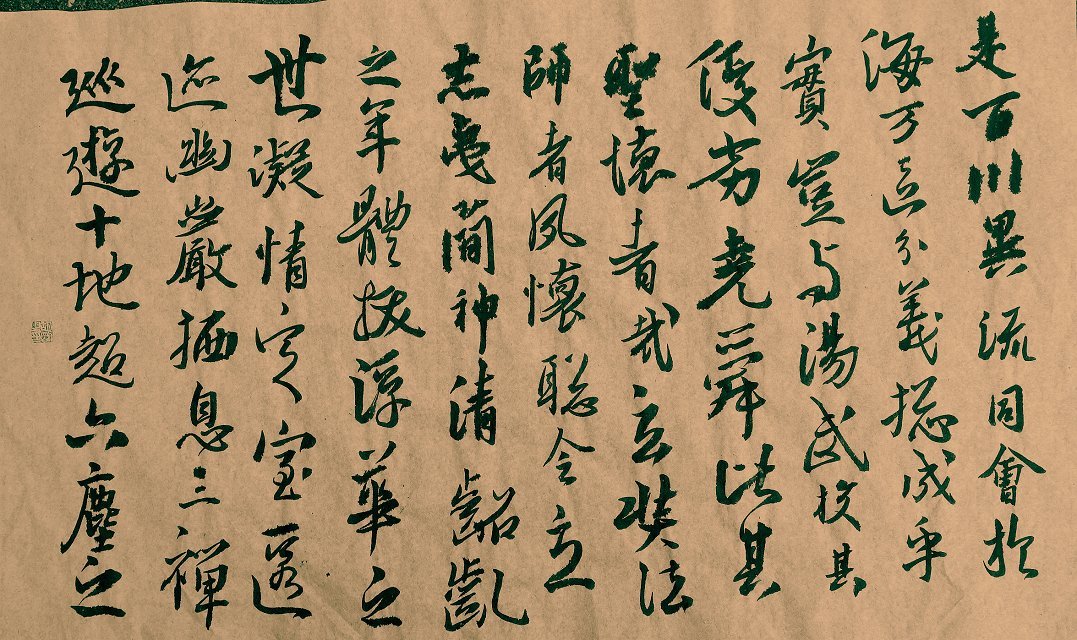 是百川異流同會於
海万區分義揔成乎
實豈与湯武校其
優劣堯舜比其
聖德者哉玄奘法
師者夙懷聡令立
志夷簡神清齠齔
之年體拔浮華之
世凝情定室匿
迹幽巖栖息三禪
巡遊十地超六塵之